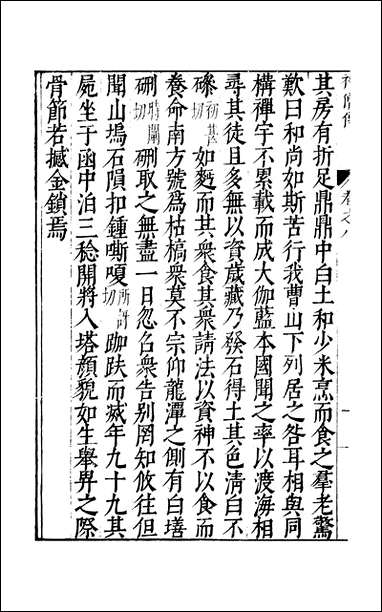 其房有折足鼎鼎中白土和少米烹而食之羣老驚
歎曰和尚如斯苦行我曹山下列居之咎耳相與同
構禪宇不累載而成大伽藍本國聞之率以渡海相
尋其徒且多無以資歲藏乃發石得土其色清白不
磣初甚切如麪而其衆食其衆請法以資神不以食而
養命南方號爲枯槁衆莫不宗仰龍潭之側有白墡
硎時闡切硎取之無盡一日忽召衆告别罔知攸往但
聞山塢石隕扣鍾嘶嗄所訝切跏趺而滅年九十九其
屍坐于函中洎三稔開將入塔顔貌如生舉舁之際
骨節若撼金鎖焉